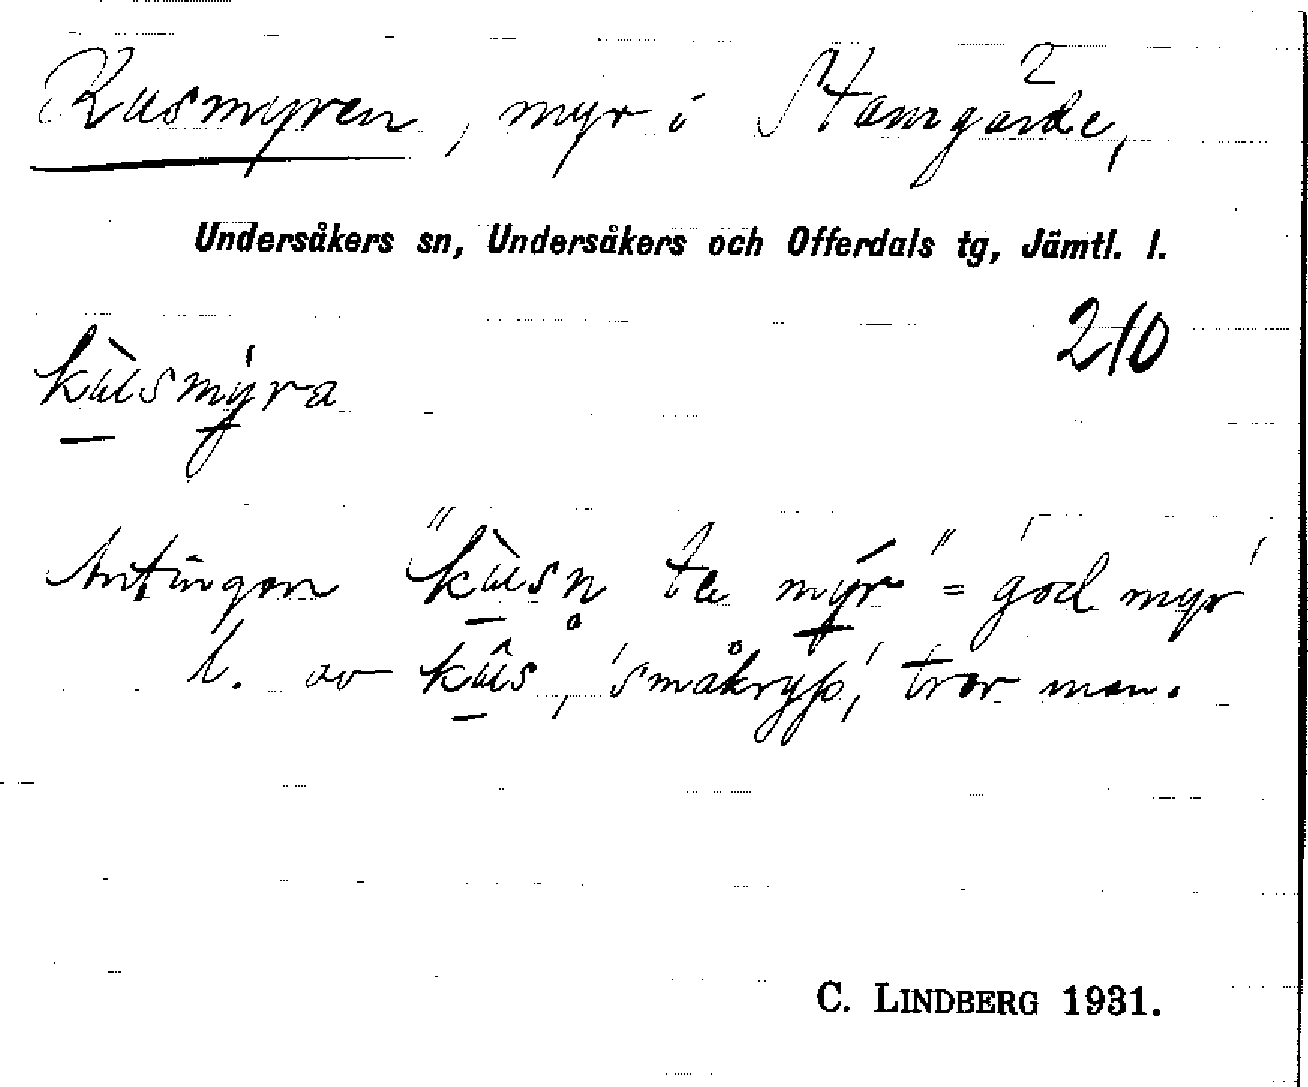 Kusmyren, myr i Stamgärde, 2
Undersåkers sn, Undersåkers och Offerdals tg, Jämtl. l.
210
kùsmýra
Antingen "kùsn̥ te mýr" = 'god myr'
l. av kûs, 'småkryp,' tror man.
C. LINDBERG 1931.